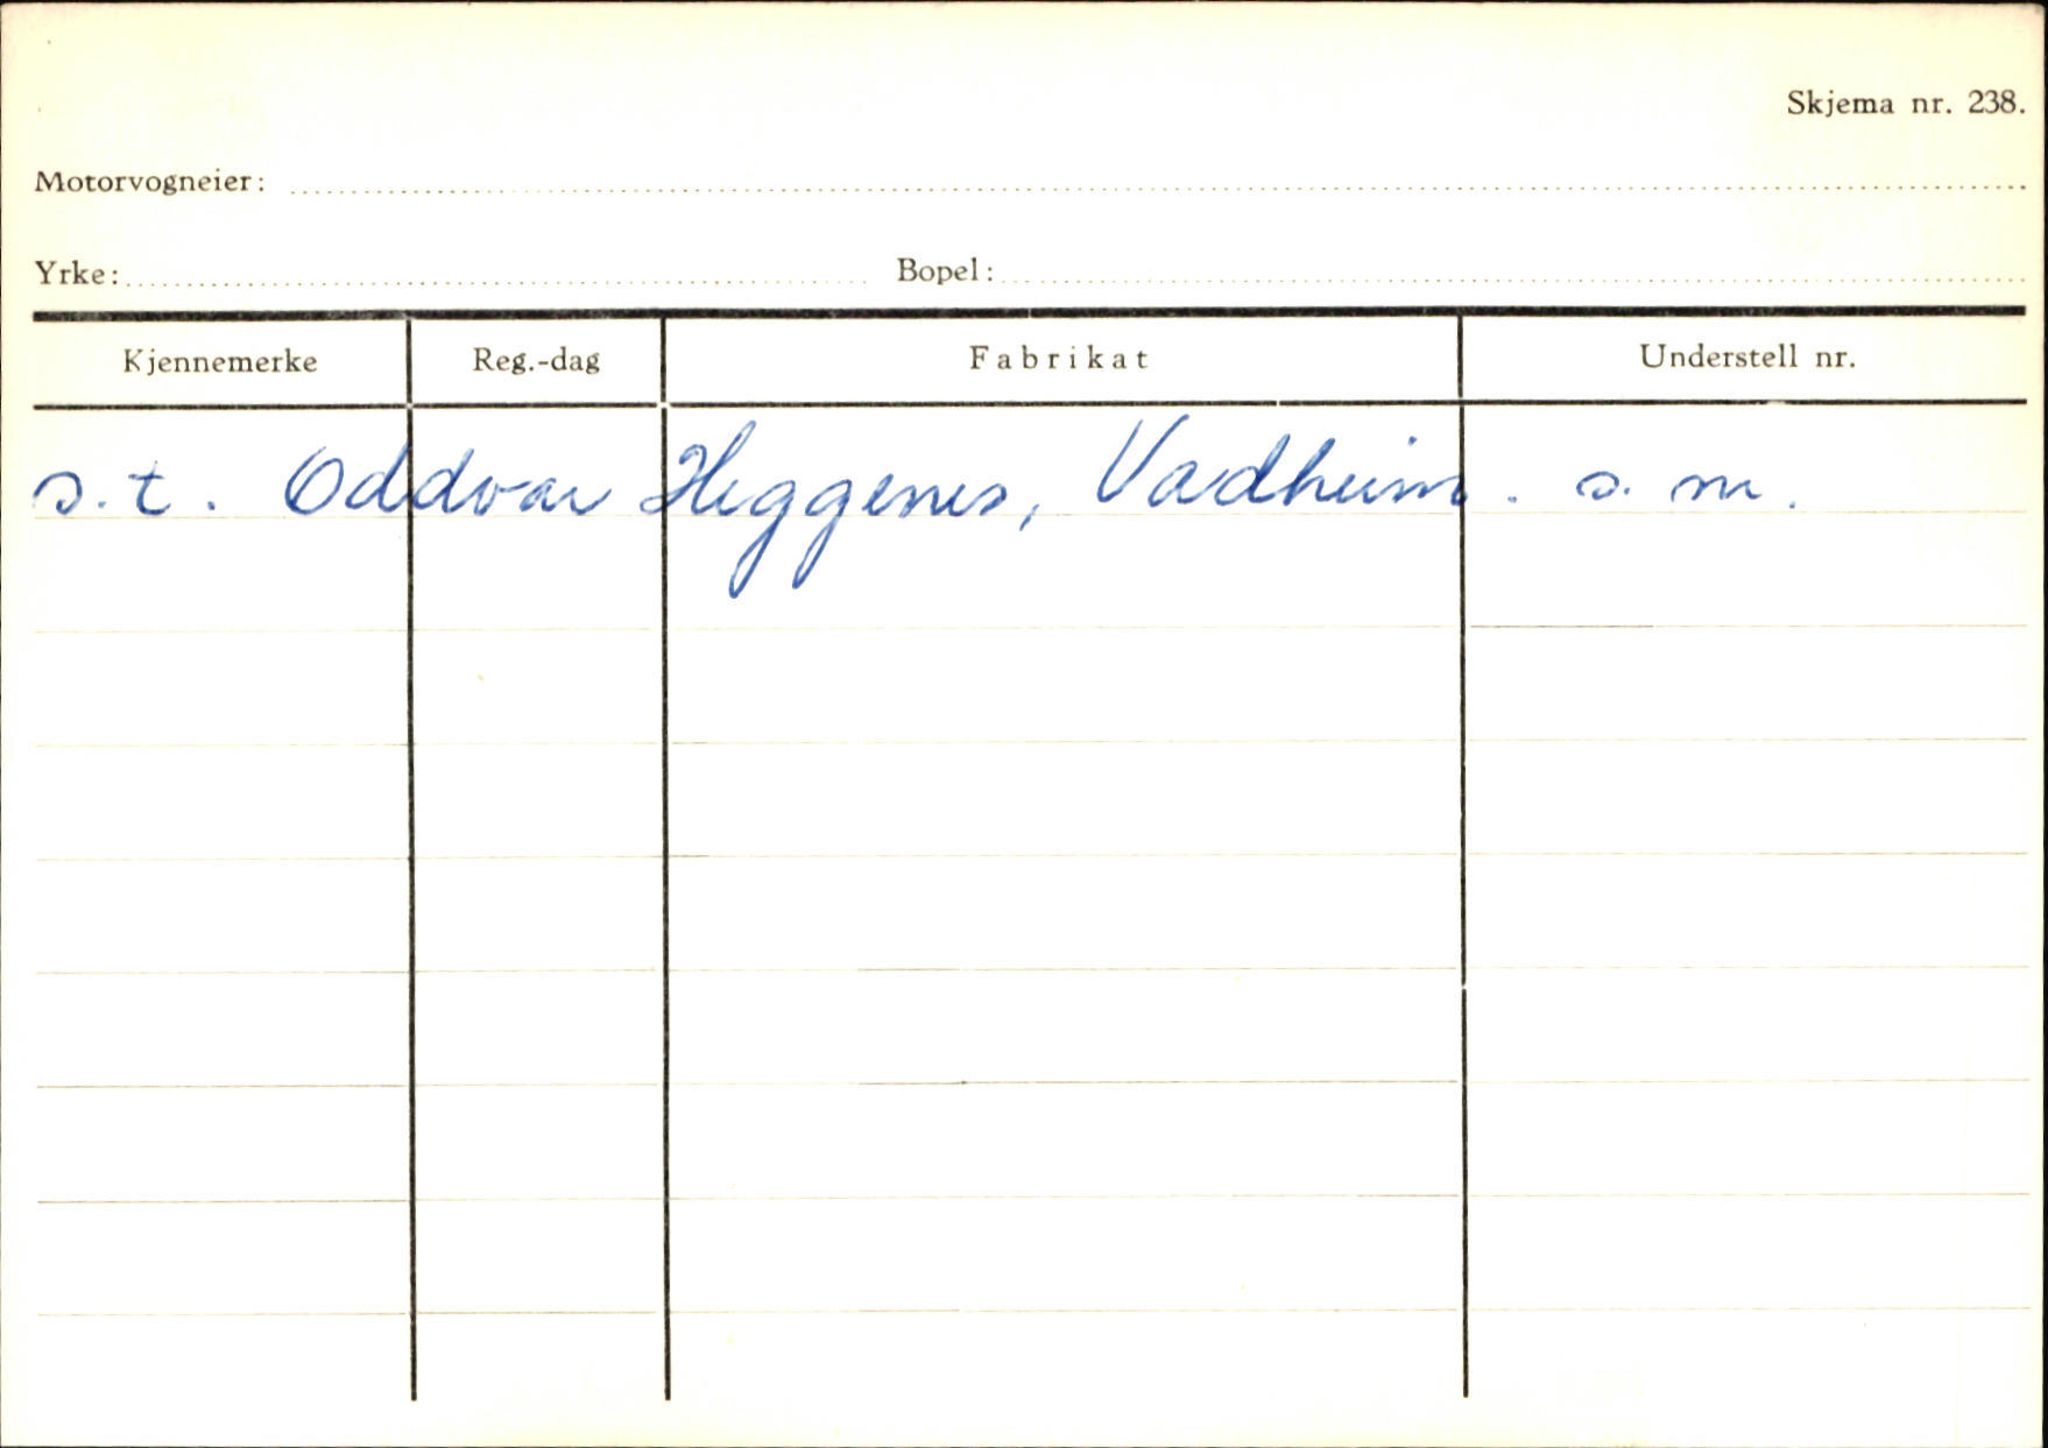 Skjema nr. 238.
Motorvogneier:
Yrke: Bopel:
Kjennemerke Reg.-dag Fabrikat Understell nr.
s.t. Oddvar Heggenes, Vadheim. s. m.